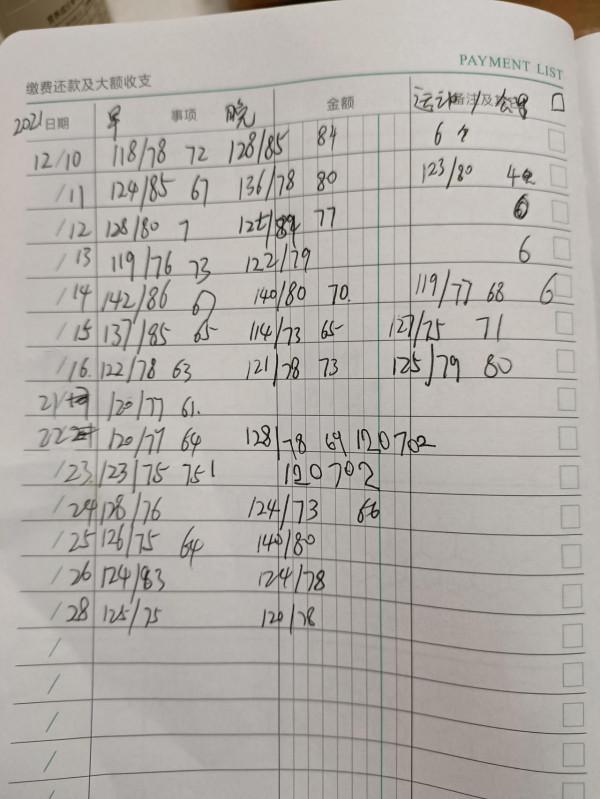 缴费还款及大额收支 PAYMENT LIST
2021 日期 早 事项 晚 金额 运动 / 备注及
12/10 118/78 72 128/85 84 6
/11 124/85 67 136/78 80 123/80 4
/12 128/80 7 77 6
/13 119/76 73 122/79 6
/14 142/86 67 140/80 70. 119/77 68 6
/15 137/85 65 114/73 65 127/75 71
/16 122/78 63 121/78 73 125/79 80
21 120/77 61.
22 120/77 64 128/78 69 120 702
/23 123/75 75 120 702
/24 128/76 124/73 66
/25 126/75 64 140/80
/26 124/83 124/78
/28 125/75 120/78
/
/
/
/
/